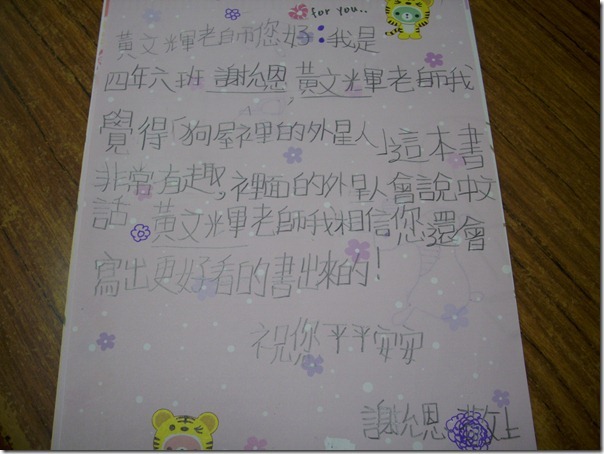 for you..
黃文輝老師您好：我是
四年六班 謝允恩，黃文輝老師我
覺得「狗屋裡的外星人」這本書
非常有趣，裡面的外星人會說中文
話。黃文輝老師我相信您還會
寫出更好看的書出來的！
祝您平平安安
謝允恩 敬上